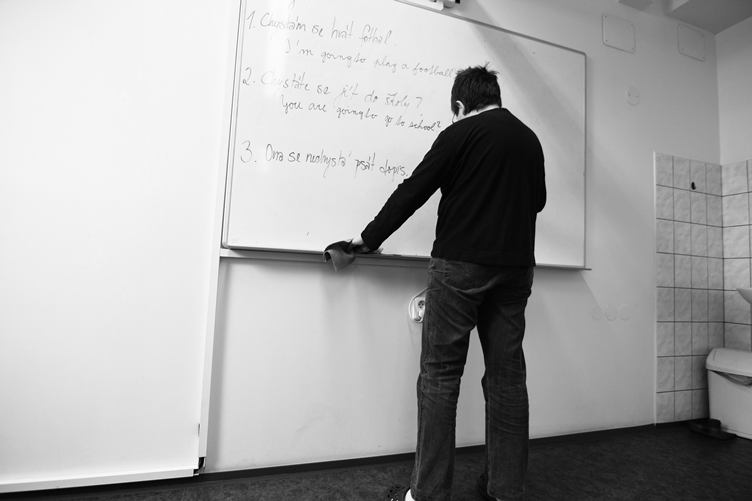 1. Chystám se hrát fotbal.
I'm going to play a football
2. Chystáte se jít do školy?
You are going to go to school?
3. Ona se nechystá psát dopis.